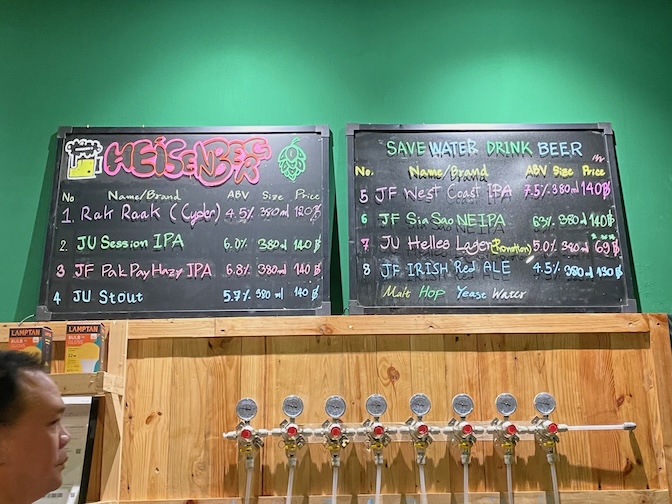 HEISENBEER
No Name/Brand ABV Size Price
1. Rak Raak (Cyder) 4.5% 380ml 120฿
2. JU Session IPA 6.0% 380ml 140฿
3 JF Pak Pay Hazy IPA 6.8% 380ml 140฿
4 JU Stout 5.7% 380ml 140฿
SAVE WATER DRINK BEER
No. Name/Brand ABV Size Price
5 JF West Coast IPA 7.5% 380ml 140฿
6 JF Sia Sao NEIPA 6.3% 380ml 140฿
7 JU Helles Lager (Promotion) 5.0% 380ml 69฿
8 JF IRISH Red ALE 4.5% 380ml 130฿
Malt Hop Yeast Water
LAMPTAN
BULB
LAMPTAN
BULB